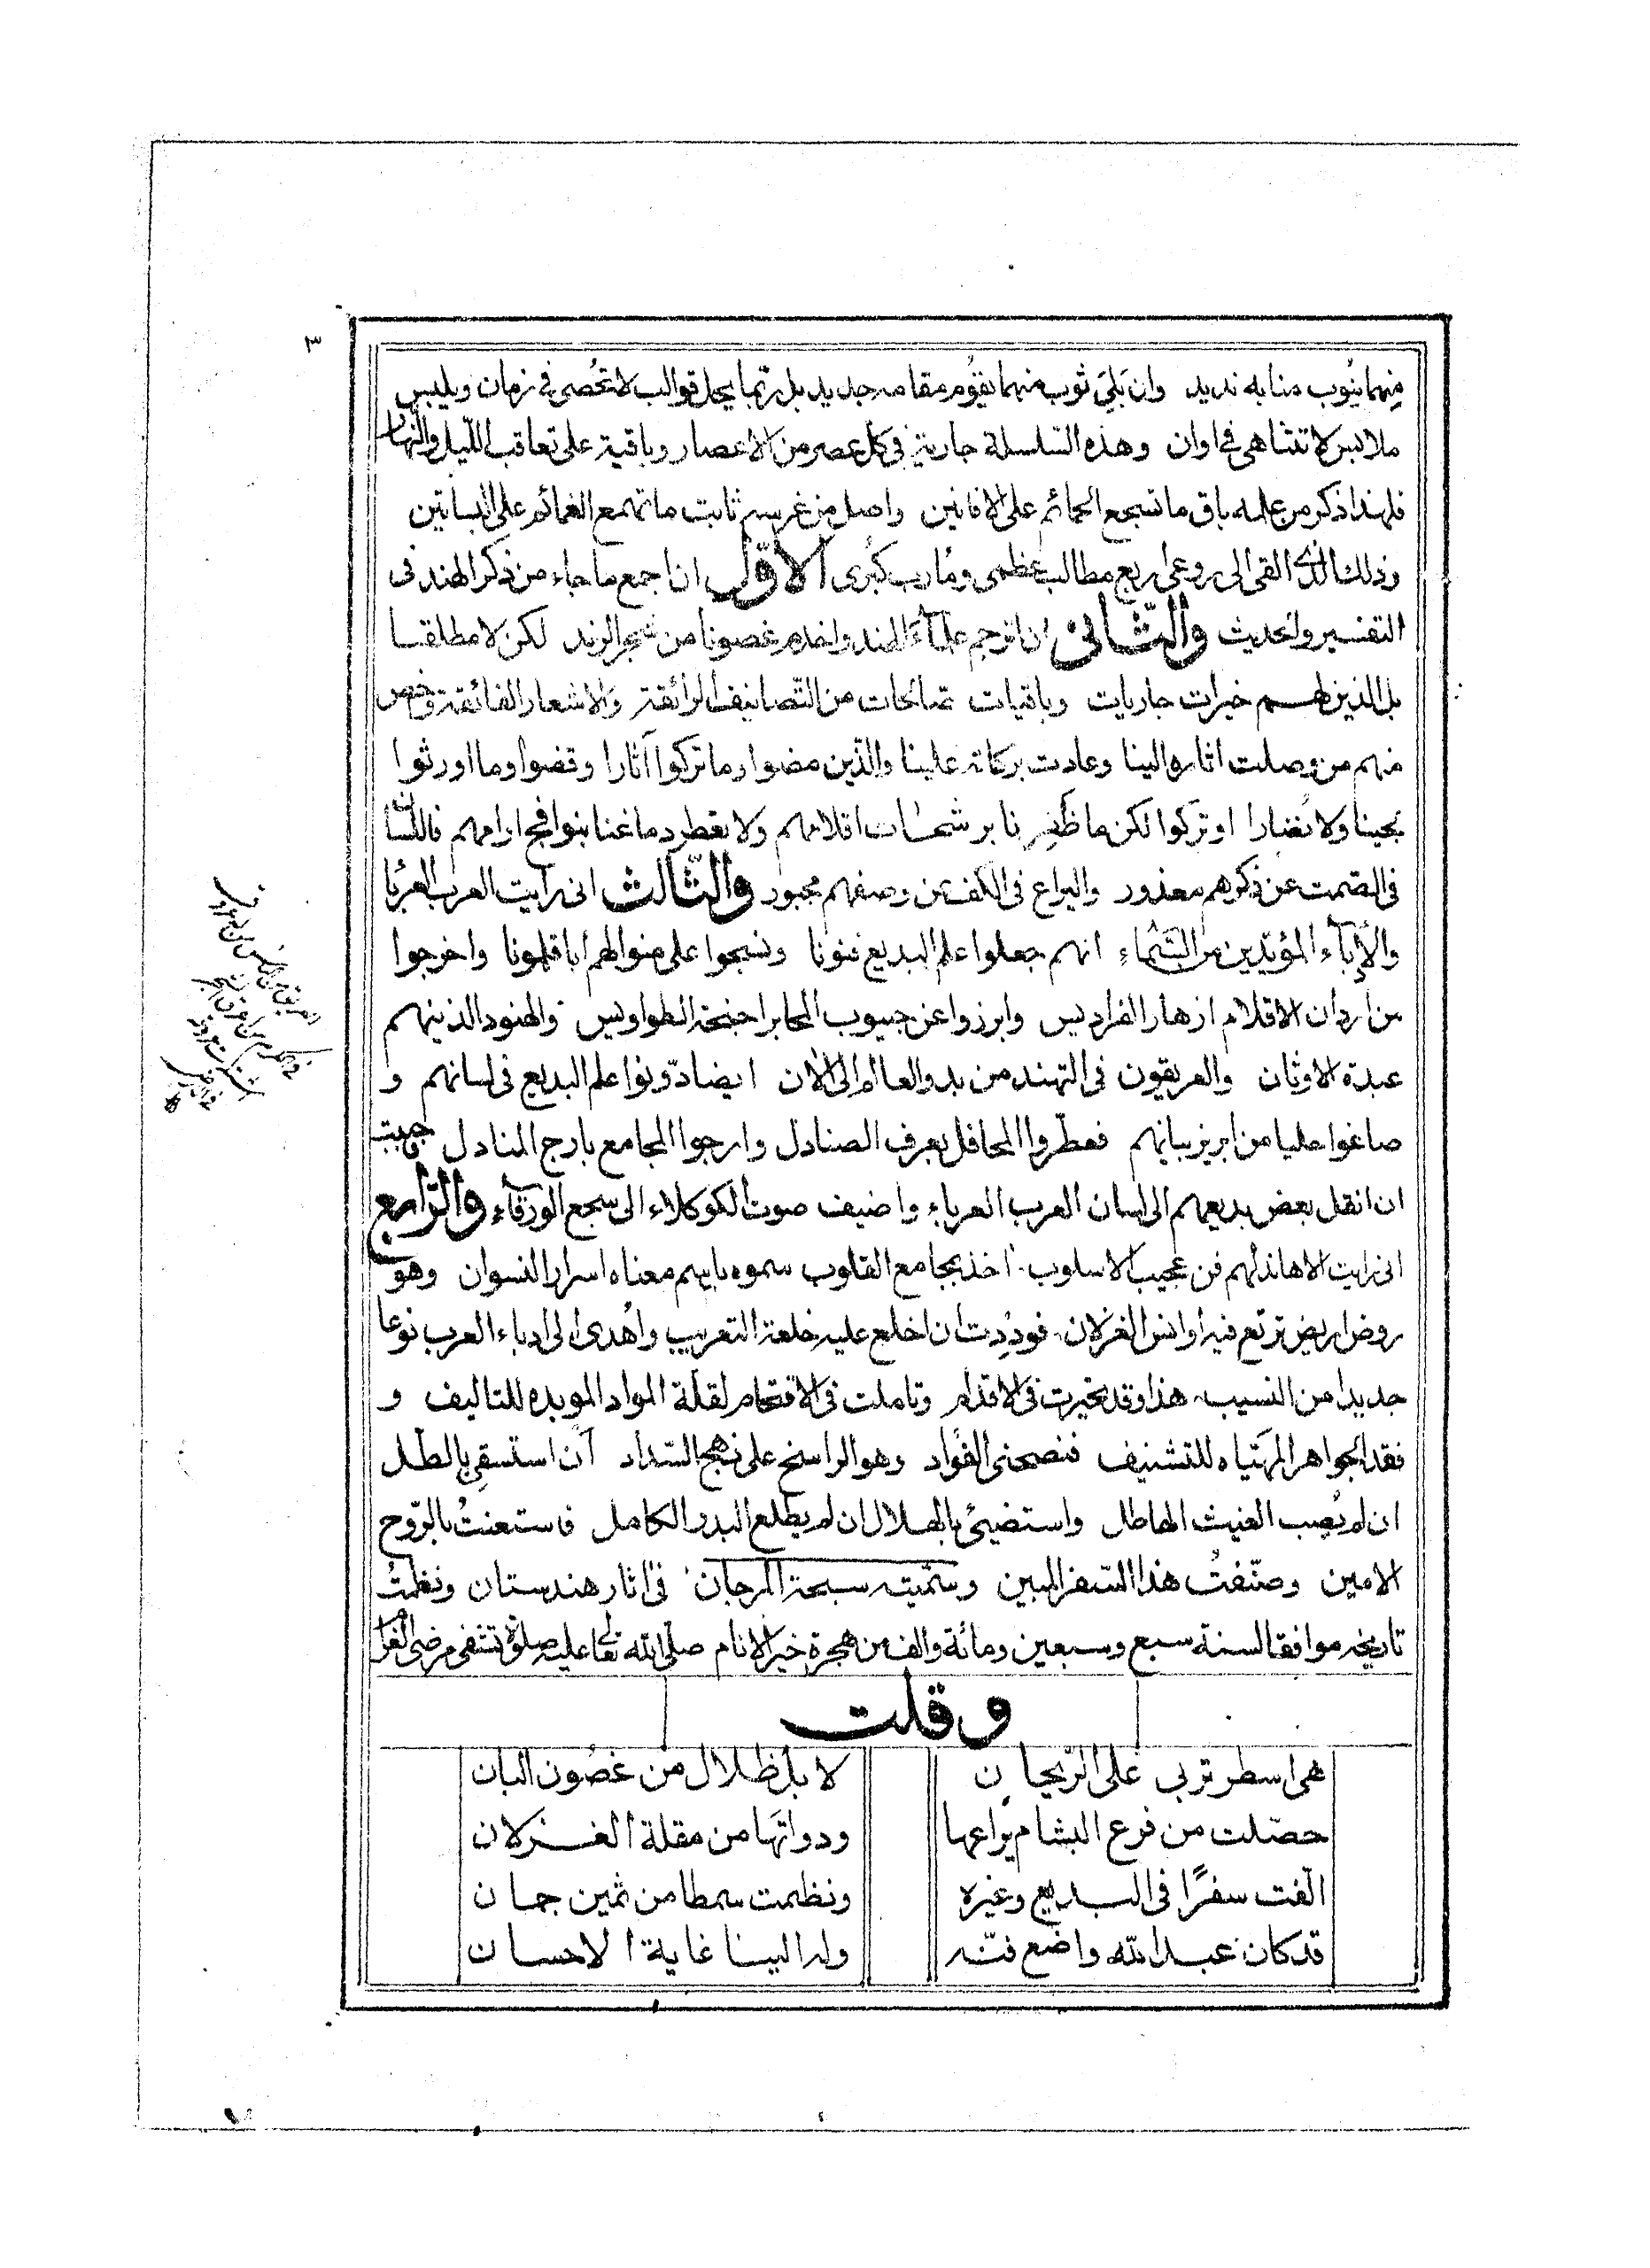 ٣
منهما ينُوب منابه نديد وان بَلِيَ ثوب منهما يقوُم مقامه جديد بل ربّما يحل قوالب لا تُحُصى فى زمان ويلبس
ملابس لا تتناهى فى اوان وهذه السّلسلة جارية فى كل عصر من الاعصار وباقية على تعاقب اللّيل والنّهار
فلهذا ذكر من علمه باق ما تسجع الحمائم على الافانين واصل من غرسه ثابت ما تهمع الغمائم على البساتين
وذلك الذى القى الى روعى اربع مطالب عظمى ومُارب كبُرى الاوّل ان اجمع ما جاء من ذكر الهند فى
التفسير والحديث والثّانى ان اترجم علمآءَ الهند واخدم غصونا من شجر الرند لكن لا مطلقا
بل الذين لهم خيرات جاريات وباقيات صالحات من التّصانيف الرائقة والاشعار الفائقة وخص
منهم من وصلت اثاره الينا وعادت بركاته علينا والّذين مضوا وما تركوا آثارا وقضوا وما اورثوا
لجينا ولا نُضارا او تركوا لكن ما ظَفِرنا برشحات اقلامهم ولا بعطر دماغنا بنوافح ارامهم فاللّسان
فى الصّمت عن ذكرهم معذور واليراع فى الكف عن وصفهم مجبور والثّالث انى رأيت العرب العربا
والأدبآء المؤيّدين من السّماء انهم جعلوا علم البديع فنونا ونسجوا على منوالهم ابا قلمونا واخرجوا
من اردان الاقلام ازهار الفراديس وابرزوا عن جيوب المحابر اجنحة الطواويس والهنود الذينهم
عبدة الاوثان والعريقون فى التهند من بدو العالم الى الآن ايضا دوّنوا علم البديع فى لسانهم و
صاغوا حليا من ابريز بيانهم فعطّروا المحافل بعرف الصنادل وارجوا المجامع بارج المنادل فاحببت
ان انقل بعض بديعهم الى لسان العرب العرباء واضيف صوت الكوكلاء الى سجع الورقآء والرّابع
انى رايت الاهاند لهم فن عجيب الاسلوب اخذ بمجامع القلوب سموه باسم معناه اسرار النسوان وهو
روض اريض ترتع فيه اوانس الغزلان فودِدت ان اخلع عليه خلعة التعريب واُهدى الى ادباء العرب نوعا
جديدا من النسيب هذا وقد تحيرت فى الاقدام وتاملت فى الاقتحام لقلّة المواد الموبده للتاليف و
فقد الجواهر المهيّاه للتشنيف فنصحنى الفؤاد وهو الراسخ على نهج السّداد أن استسقى بالطل
ان لم يُصِب الغيث الهاطل واستضيئ بالهلال ان لم يطلع البدر الكامل فاستعنتُ بالرّوح
الامين وصنّفتُ هذا السّفر المبين وسمّيته سبحة المرجان فى اثار هندستان ونظمتُ
تاريخه موافقا لسنة سبع وسبعين ومائة والف من هجرة خير الانام صلّى الله تعالى عليه صلوة تشفى مرضى الغرام
وقلت
هى اسطر تربى على الرّيحان لا بل ظلال من غصُون البان
حصّلت من فرع البشام يراعها ودواتَها من مقلة الغزلان
الّفت سفرًا فى البديع وغيره ونظمت سمطا من ثمين جمان
قد كان عبد الله واضع فنّه وله الينا غاية الاحسان